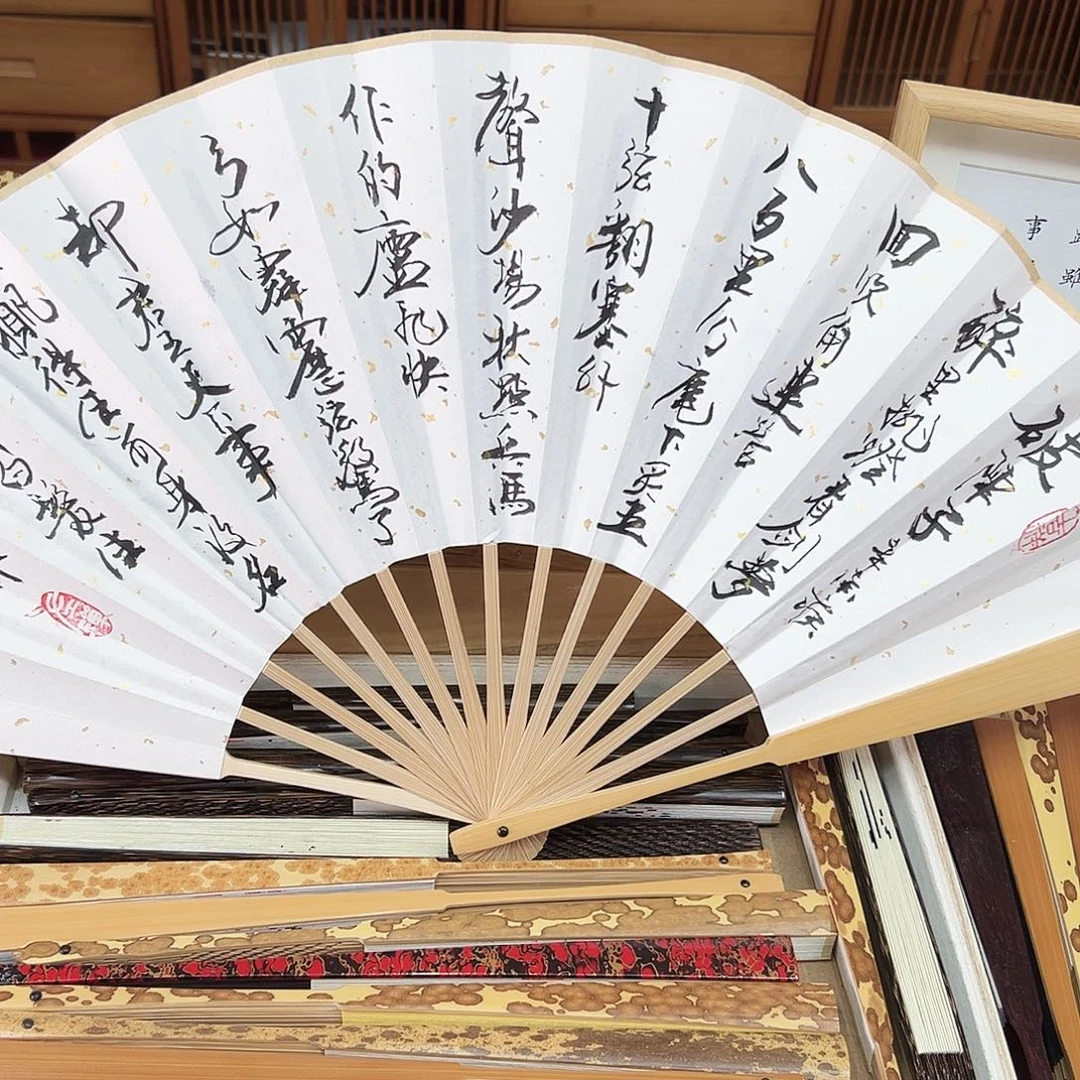 破陣子 辛棄疾
醉里挑燈看劍夢
回吹角連營
八百里分麾下炙五
十弦翻塞外
聲沙場秋點兵馬
作的盧飛快
弓如霹靂弦驚了
却君王天下事
贏得生前身後名
白發生
雖
事